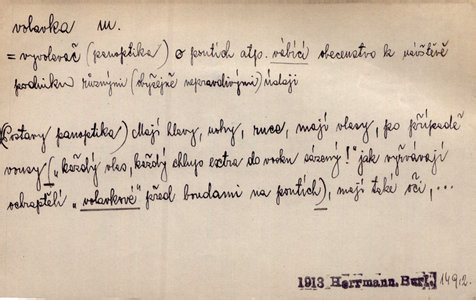 volavka m.
= vyvolavač (panoptika) o poutích atp. vábící obecenstvo k návštěvě
podniku různými (obyčejně nepravdivými) údaji
(Postavy panoptika) Mají hlavy, uchy, ruce, mají vlasy, po případě
vousy („každý vlas, každý chlup extra do vosku sázený!" jak vyřvávají
ochraptělí „volavkové" před boudami na poutích), mají také oči, ...
1913 Herrmann, Burl. 149,2.